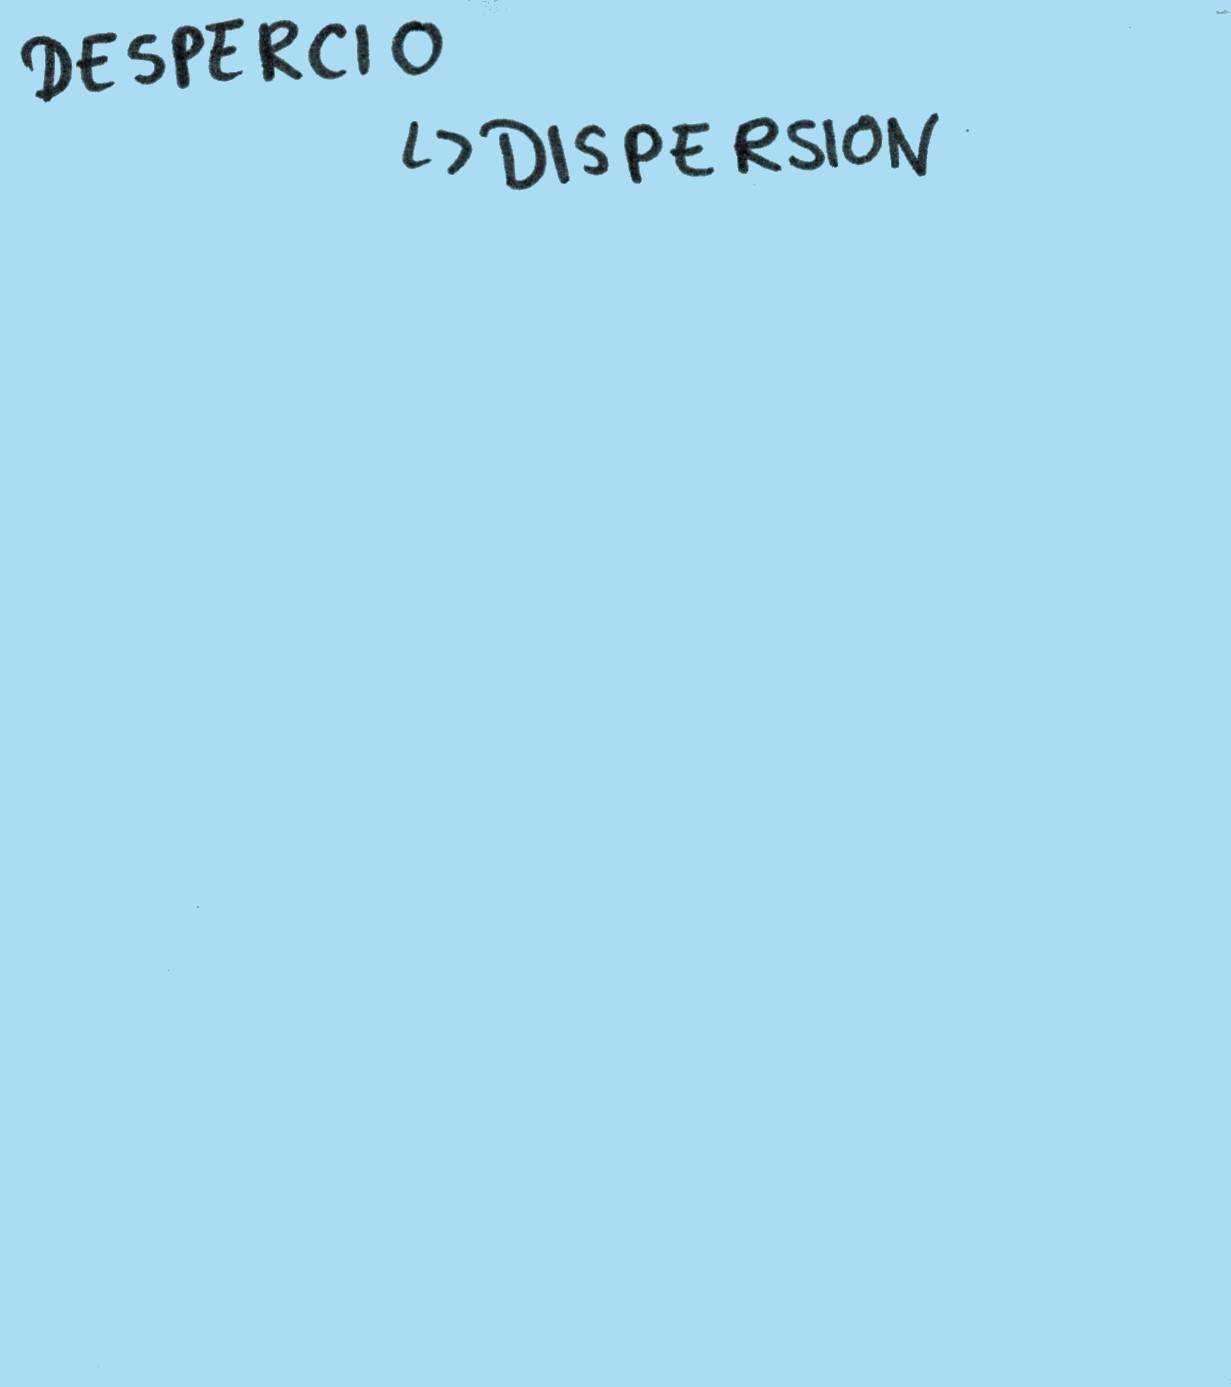 DESPERCIO
↳DISPERSION